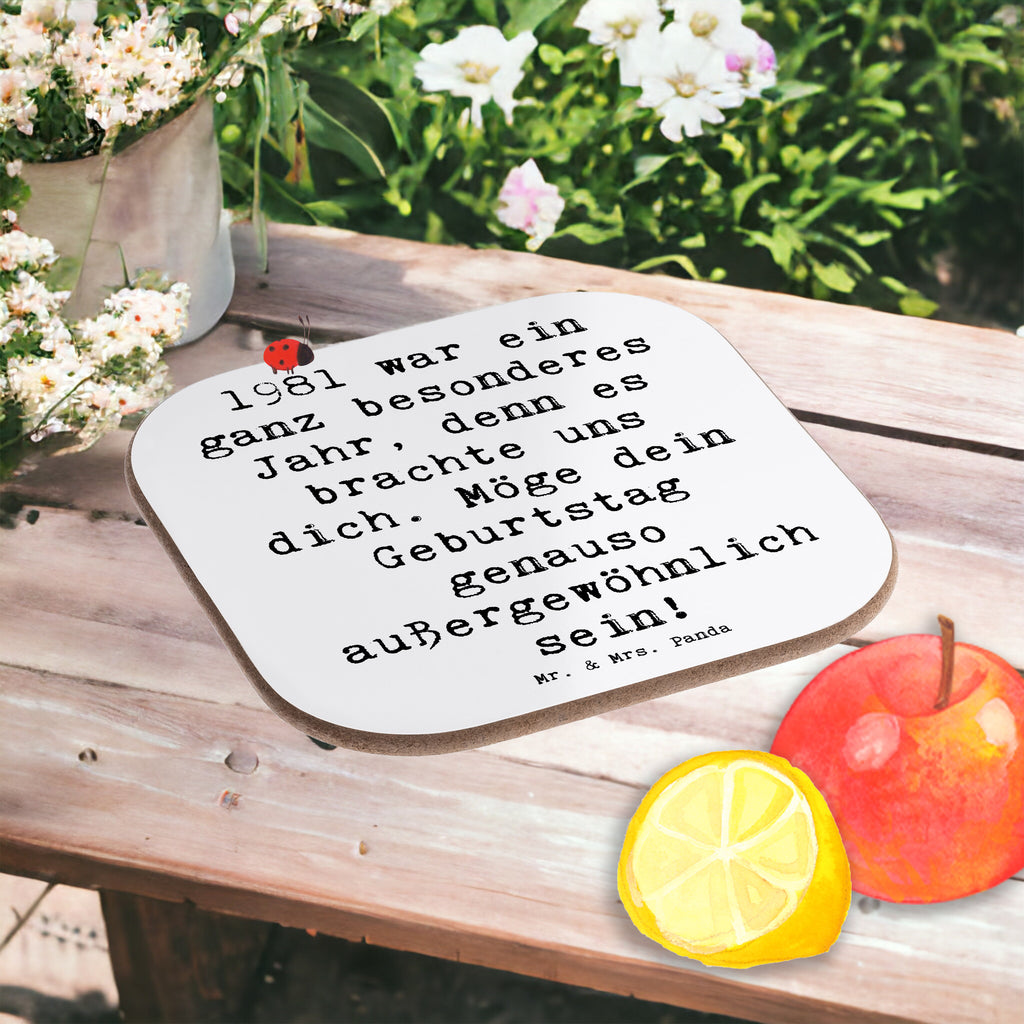 1981 war ein
ganz besonderes
Jahr, denn es
brachte uns
dich. Möge dein
Geburtstag
genauso
außergewöhnlich
sein!
Mr. & Mrs. Panda